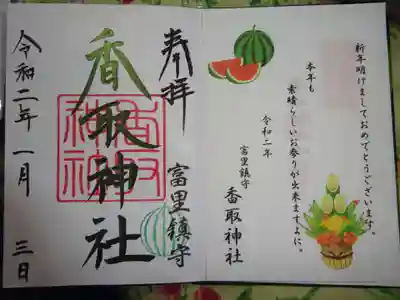 新年明けましておめでとうございます。
本年も
素晴らしいお参りが出来ますように。
令和二年
富里鎮守
香取神社
奉拝
富里鎮守
香取神社
令和二年一月三日
香取神社